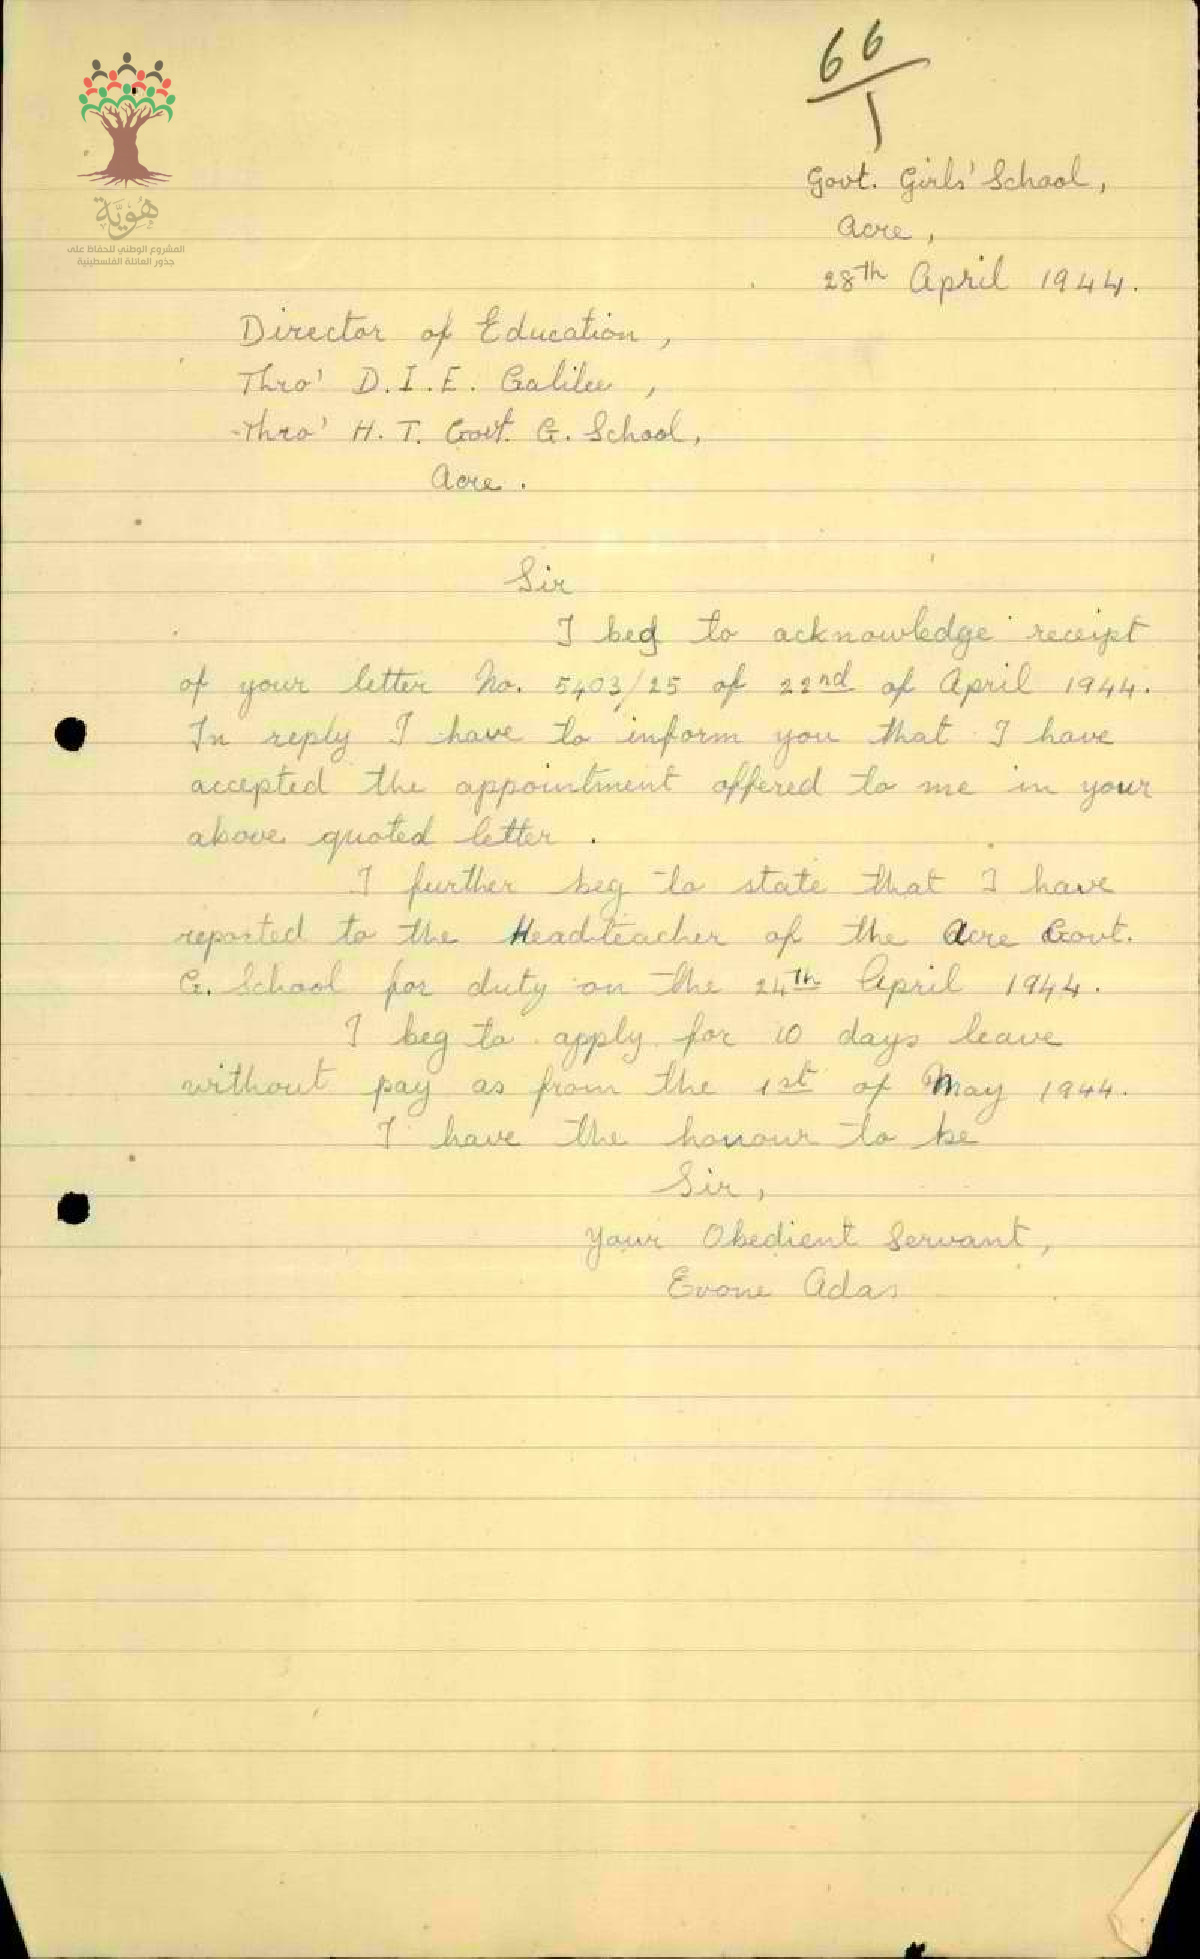 هُوِيَّة
المشروع الوطني للحفاظ على
جذور العائلة الفلسطينية
66
1
Govt. Girls' School,
Acre,
28th April 1944.
Director of Education,
Thro' D.I.E. Galilee,
Thro' H.T. Govt. G. School,
Acre.
Sir
I beg to acknowledge receipt
of your letter No. 5403/25 of 22nd of April 1944.
In reply I have to inform you that I have
accepted the appointment offered to me in your
above quoted letter.
I further beg to state that I have
reported to the Headteacher of the Acre Govt.
G. School for duty on the 24th April 1944.
I beg to apply for 10 days leave
without pay as from the 1st of May 1944.
I have the honour to be
Sir,
Your Obedient Servant,
Evone Adas